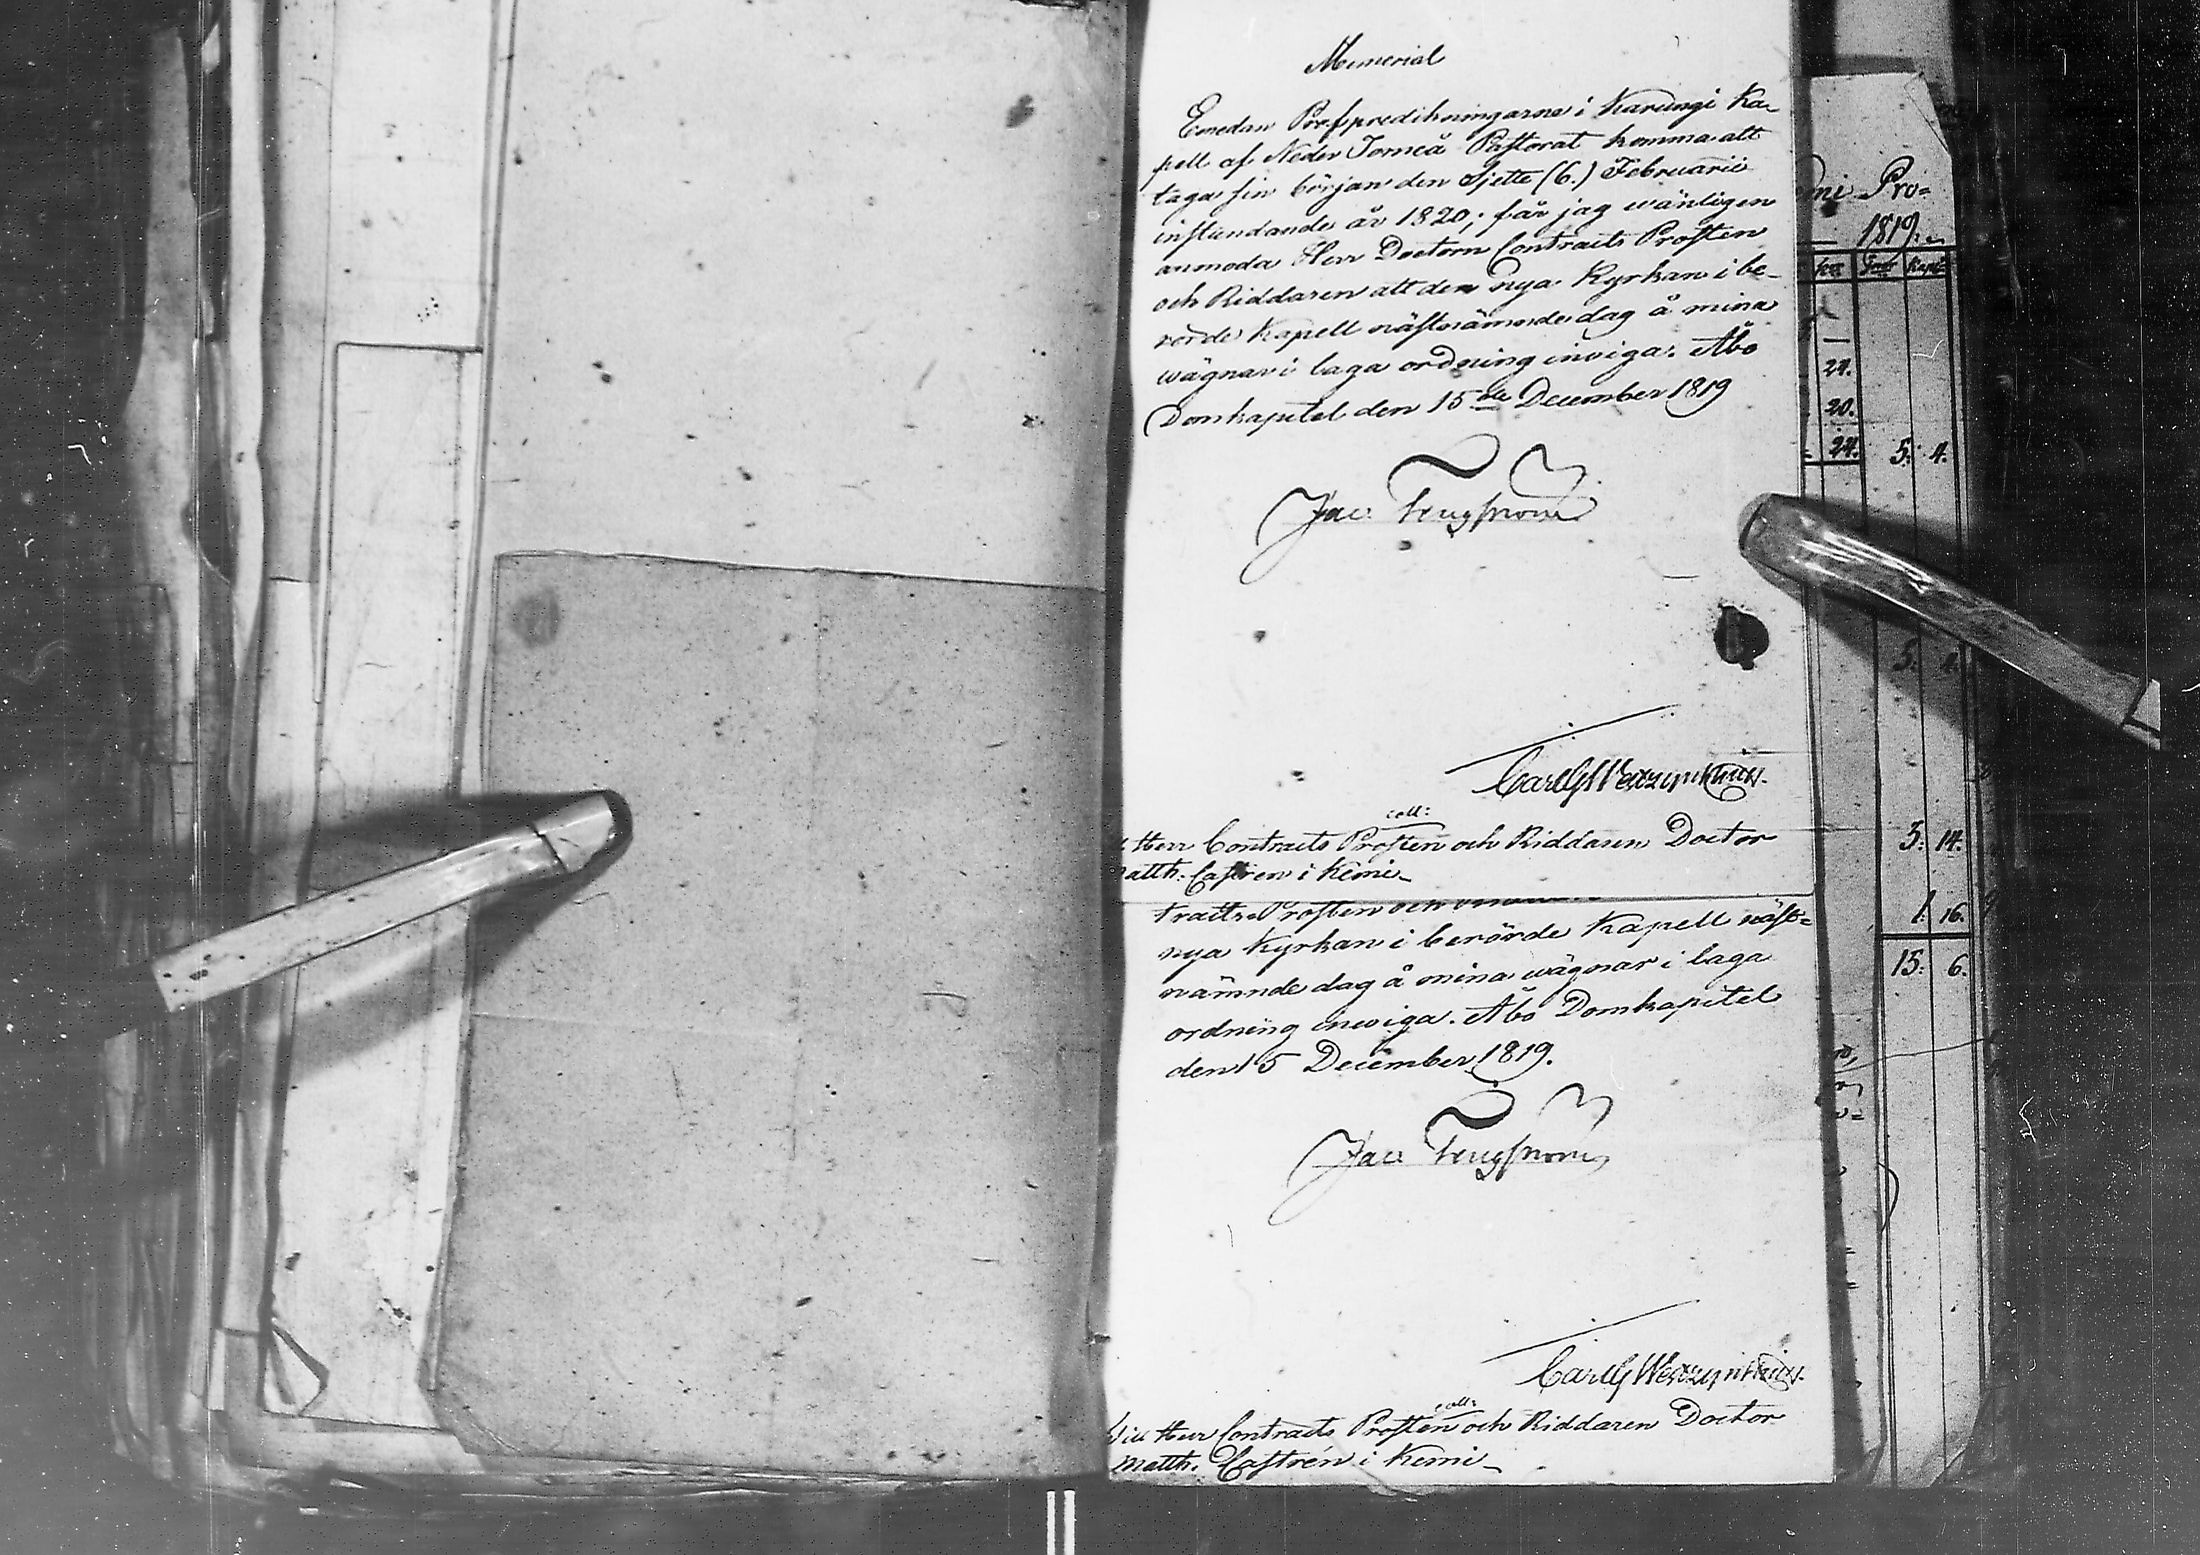 Memorial
Emedan Profpredikningarne i Karungi Ka-
pell af Neder Torneå Pastorat komma att
taga sin början den sjette (6.) Februarii
instundande år 1820; får jag wänligen
anmoda Herr Doctorn Contracts Prosten
och Riddaren att den nya Kyrkan i be-
rörde Kapell nästnämnde dag å mina
wägnar i laga ordning inviga. Åbo
Domkapitel den 15de December 1819
Jac. Tengström
Carl G Werzynthius.
coll:
Herr Contracts Prosten och Riddaren Doctor
Matth. Castrén i Kemi
tracts Prosten och
nya Kyrkan i berörde Kapell näst=
nämnde dag å mina wägnar i laga
ordning inwiga. Åbo Domkapitel
den 15 December 1819.
Jac. Tengström
Carl G Werzynthius.
coll:
Till Herr Contracts Prosten och Riddaren Doctor
Matth. Castrén i Kemi
Pro=
1819
24.
20.
24. 5. 4.
5.
3. 14.
1. 16.
15. 6.